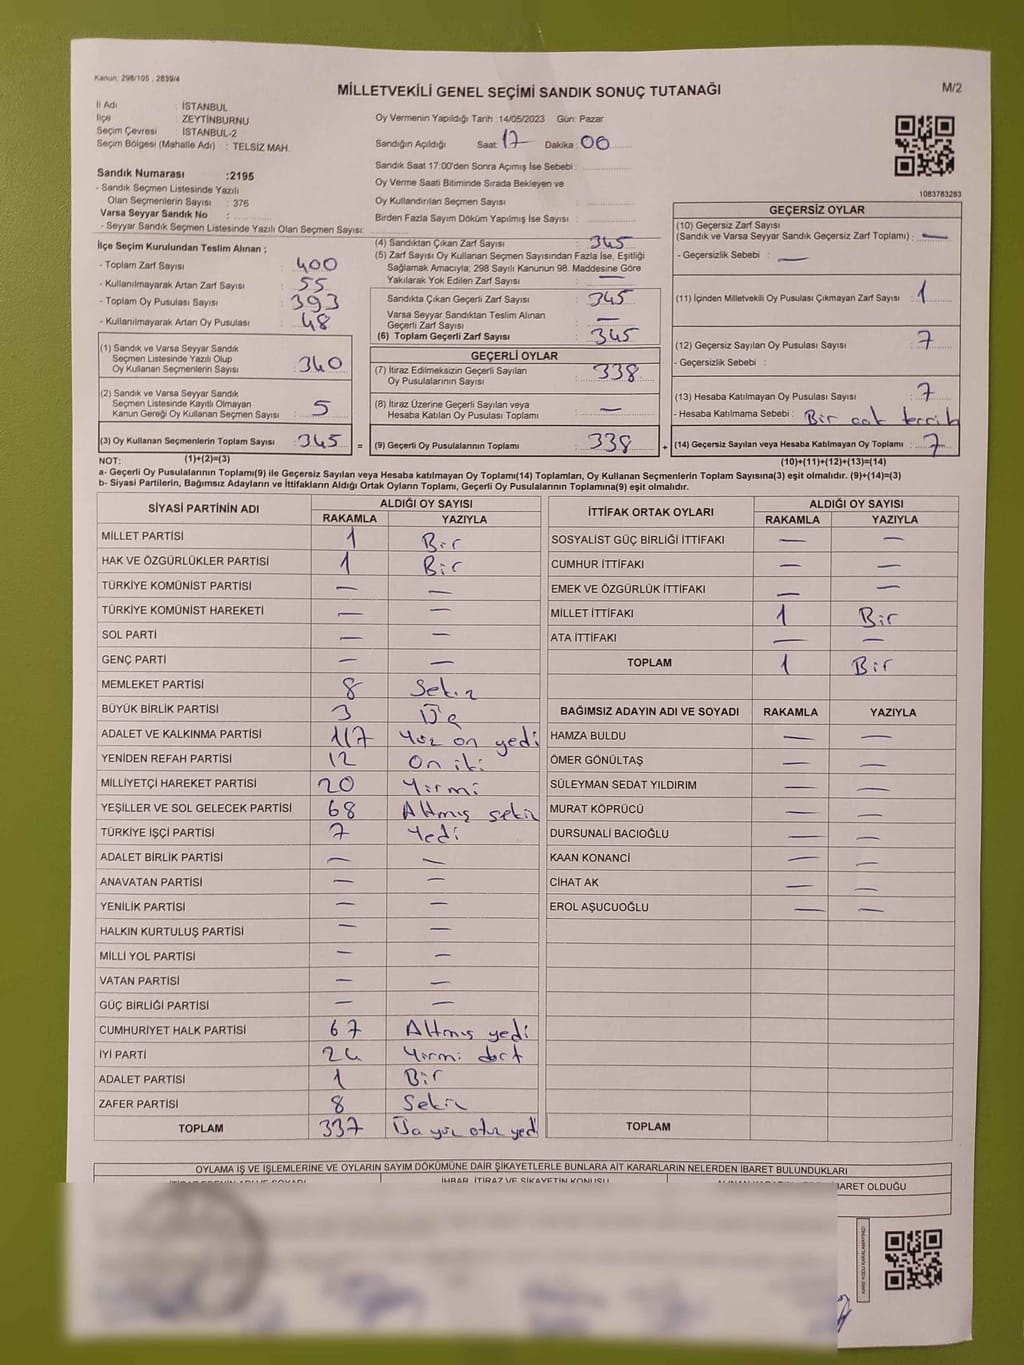 Kanun: 298/105 , 2839/4
MİLLETVEKİLİ GENEL SEÇİMİ SANDIK SONUÇ TUTANAĞI
M/2
İl Adı : İSTANBUL
İlçe : ZEYTİNBURNU
Seçim Çevresi : İSTANBUL-2
Seçim Bölgesi (Mahalle Adı) : TELSİZ MAH.
Sandık Numarası :2195
- Sandık Seçmen Listesinde Yazılı
Olan Seçmenlerin Sayısı : 376
Varsa Seyyar Sandık No :
- Seyyar Sandık Seçmen Listesinde Yazılı Olan Seçmen Sayısı:
Oy Vermenin Yapıldığı Tarih :14/05/2023 Gün: Pazar
Sandığın Açıldığı Saat: 17 Dakika : 06
Sandık Saat 17:00'den Sonra Açımış İse Sebebi :
Oy Verme Saati Bitiminde Sırada Bekleyen ve
Oy Kullandırılan Seçmen Sayısı :
Birden Fazla Sayım Döküm Yapılmış İse Sayısı :
1083783283
İlçe Seçim Kurulundan Teslim Alınan ;
- Toplam Zarf Sayısı : 400
- Kullanılmayarak Artan Zarf Sayısı : 55
- Toplam Oy Pusulası Sayısı : 393
- Kullanılmayarak Artan Oy Pusulası : 48
(1) Sandık ve Varsa Seyyar Sandık
Seçmen Listesinde Yazılı Olup
Oy Kullanan Seçmenlerin Sayısı : 340
(2) Sandık ve Varsa Seyyar Sandık
Seçmen Listesinde Kayıtlı Olmayan
Kanun Gereği Oy Kullanan Seçmen Sayısı : 5
(3) Oy Kullanan Seçmenlerin Toplam Sayısı : 345 =
(1)+(2)=(3)
(4) Sandıktan Çıkan Zarf Sayısı : 345
(5) Zarf Sayısı Oy Kullanan Seçmen Sayısından Fazla İse, Eşitliği
Sağlamak Amacıyla; 298 Sayılı Kanunun 98. Maddesine Göre
Yakılarak Yok Edilen Zarf Sayısı : —
Sandıkta Çıkan Geçerli Zarf Sayısı : 345
Varsa Seyyar Sandıktan Teslim Alınan
Geçerli Zarf Sayısı : —
(6) Toplam Geçerli Zarf Sayısı : 345
GEÇERLİ OYLAR
(7) İtiraz Edilmeksizin Geçerli Sayılan
Oy Pusulalarının Sayısı : 338
(8) İtiraz Üzerine Geçerli Sayılan veya
Hesaba Katılan Oy Pusulası Toplamı : —
(9) Geçerli Oy Pusulalarının Toplamı : 338 +
GEÇERSİZ OYLAR
(10) Geçersiz Zarf Sayısı
(Sandık ve Varsa Seyyar Sandık Geçersiz Zarf Toplamı) : —
- Geçersizlik Sebebi : —
(11) İçinden Milletvekili Oy Pusulası Çıkmayan Zarf Sayısı : 1
(12) Geçersiz Sayılan Oy Pusulası Sayısı : 7
- Geçersizlik Sebebi :
(13) Hesaba Katılmayan Oy Pusulası Sayısı : 7
- Hesaba Katılmama Sebebi : Bir
(14) Geçersiz Sayılan veya Hesaba Katılmayan Oy Toplamı : 7
(10)+(11)+(12)+(13)=(14)
NOT:
a- Geçerli Oy Pusulalarının Toplamı(9) ile Geçersiz Sayılan veya Hesaba katılmayan Oy Toplamı(14) Toplamları, Oy Kullanan Seçmenlerin Toplam Sayısına(3) eşit olmalıdır. (9)+(14)=(3)
b- Siyasi Partilerin, Bağımsız Adayların ve İttifakların Aldığı Ortak Oyların Toplamı, Geçerli Oy Pusulalarının Toplamına(9) eşit olmalıdır.
SİYASİ PARTİNİN ADI ALDIĞI OY SAYISI
RAKAMLA YAZIYLA
MİLLET PARTİSİ 1 Bir
HAK VE ÖZGÜRLÜKLER PARTİSİ 1 Bir
TÜRKİYE KOMÜNİST PARTİSİ — —
TÜRKİYE KOMÜNİST HAREKETİ — —
SOL PARTİ — —
GENÇ PARTİ — —
MEMLEKET PARTİSİ 8 Sekiz
BÜYÜK BİRLİK PARTİSİ 3 Üç
ADALET VE KALKINMA PARTİSİ 117 Yüz on yedi
YENİDEN REFAH PARTİSİ 12 On iki
MİLLİYETÇİ HAREKET PARTİSİ 20 Yirmi
YEŞİLLER VE SOL GELECEK PARTİSİ 68 Altmış sekiz
TÜRKİYE İŞÇİ PARTİSİ 7 Yedi
ADALET BİRLİK PARTİSİ — —
ANAVATAN PARTİSİ — —
YENİLİK PARTİSİ — —
HALKIN KURTULUŞ PARTİSİ — —
MİLLİ YOL PARTİSİ — —
VATAN PARTİSİ — —
GÜÇ BİRLİĞİ PARTİSİ — —
CUMHURİYET HALK PARTİSİ 67 Altmış yedi
İYİ PARTİ 24 Yirmi dört
ADALET PARTİSİ 1 Bir
ZAFER PARTİSİ 8 Sekiz
TOPLAM 337 Üç yüz otuz yedi
İTTİFAK ORTAK OYLARI ALDIĞI OY SAYISI
RAKAMLA YAZIYLA
SOSYALİST GÜÇ BİRLİĞİ İTTİFAKI — —
CUMHUR İTTİFAKI — —
EMEK VE ÖZGÜRLÜK İTTİFAKI — —
MİLLET İTTİFAKI 1 Bir
ATA İTTİFAKI — —
TOPLAM 1 Bir
BAĞIMSIZ ADAYIN ADI VE SOYADI RAKAMLA YAZIYLA
HAMZA BULDU — —
ÖMER GÖNÜLTAŞ — —
SÜLEYMAN SEDAT YILDIRIM — —
MURAT KÖPRÜCÜ — —
DURSUNALİ BACIOĞLU — —
KAAN KONANCİ — —
CİHAT AK — —
EROL AŞUCUOĞLU — —
TOPLAM
OYLAMA İŞ VE İŞLEMLERİNE VE OYLARIN SAYIM DÖKÜMÜNE DAİR ŞİKAYETLERLE BUNLARA AİT KARARLARIN NELERDEN İBARET BULUNDUKLARI
İHBAR, İTİRAZ VE ŞİKAYETİN KONUSU
İBARET OLDUĞU